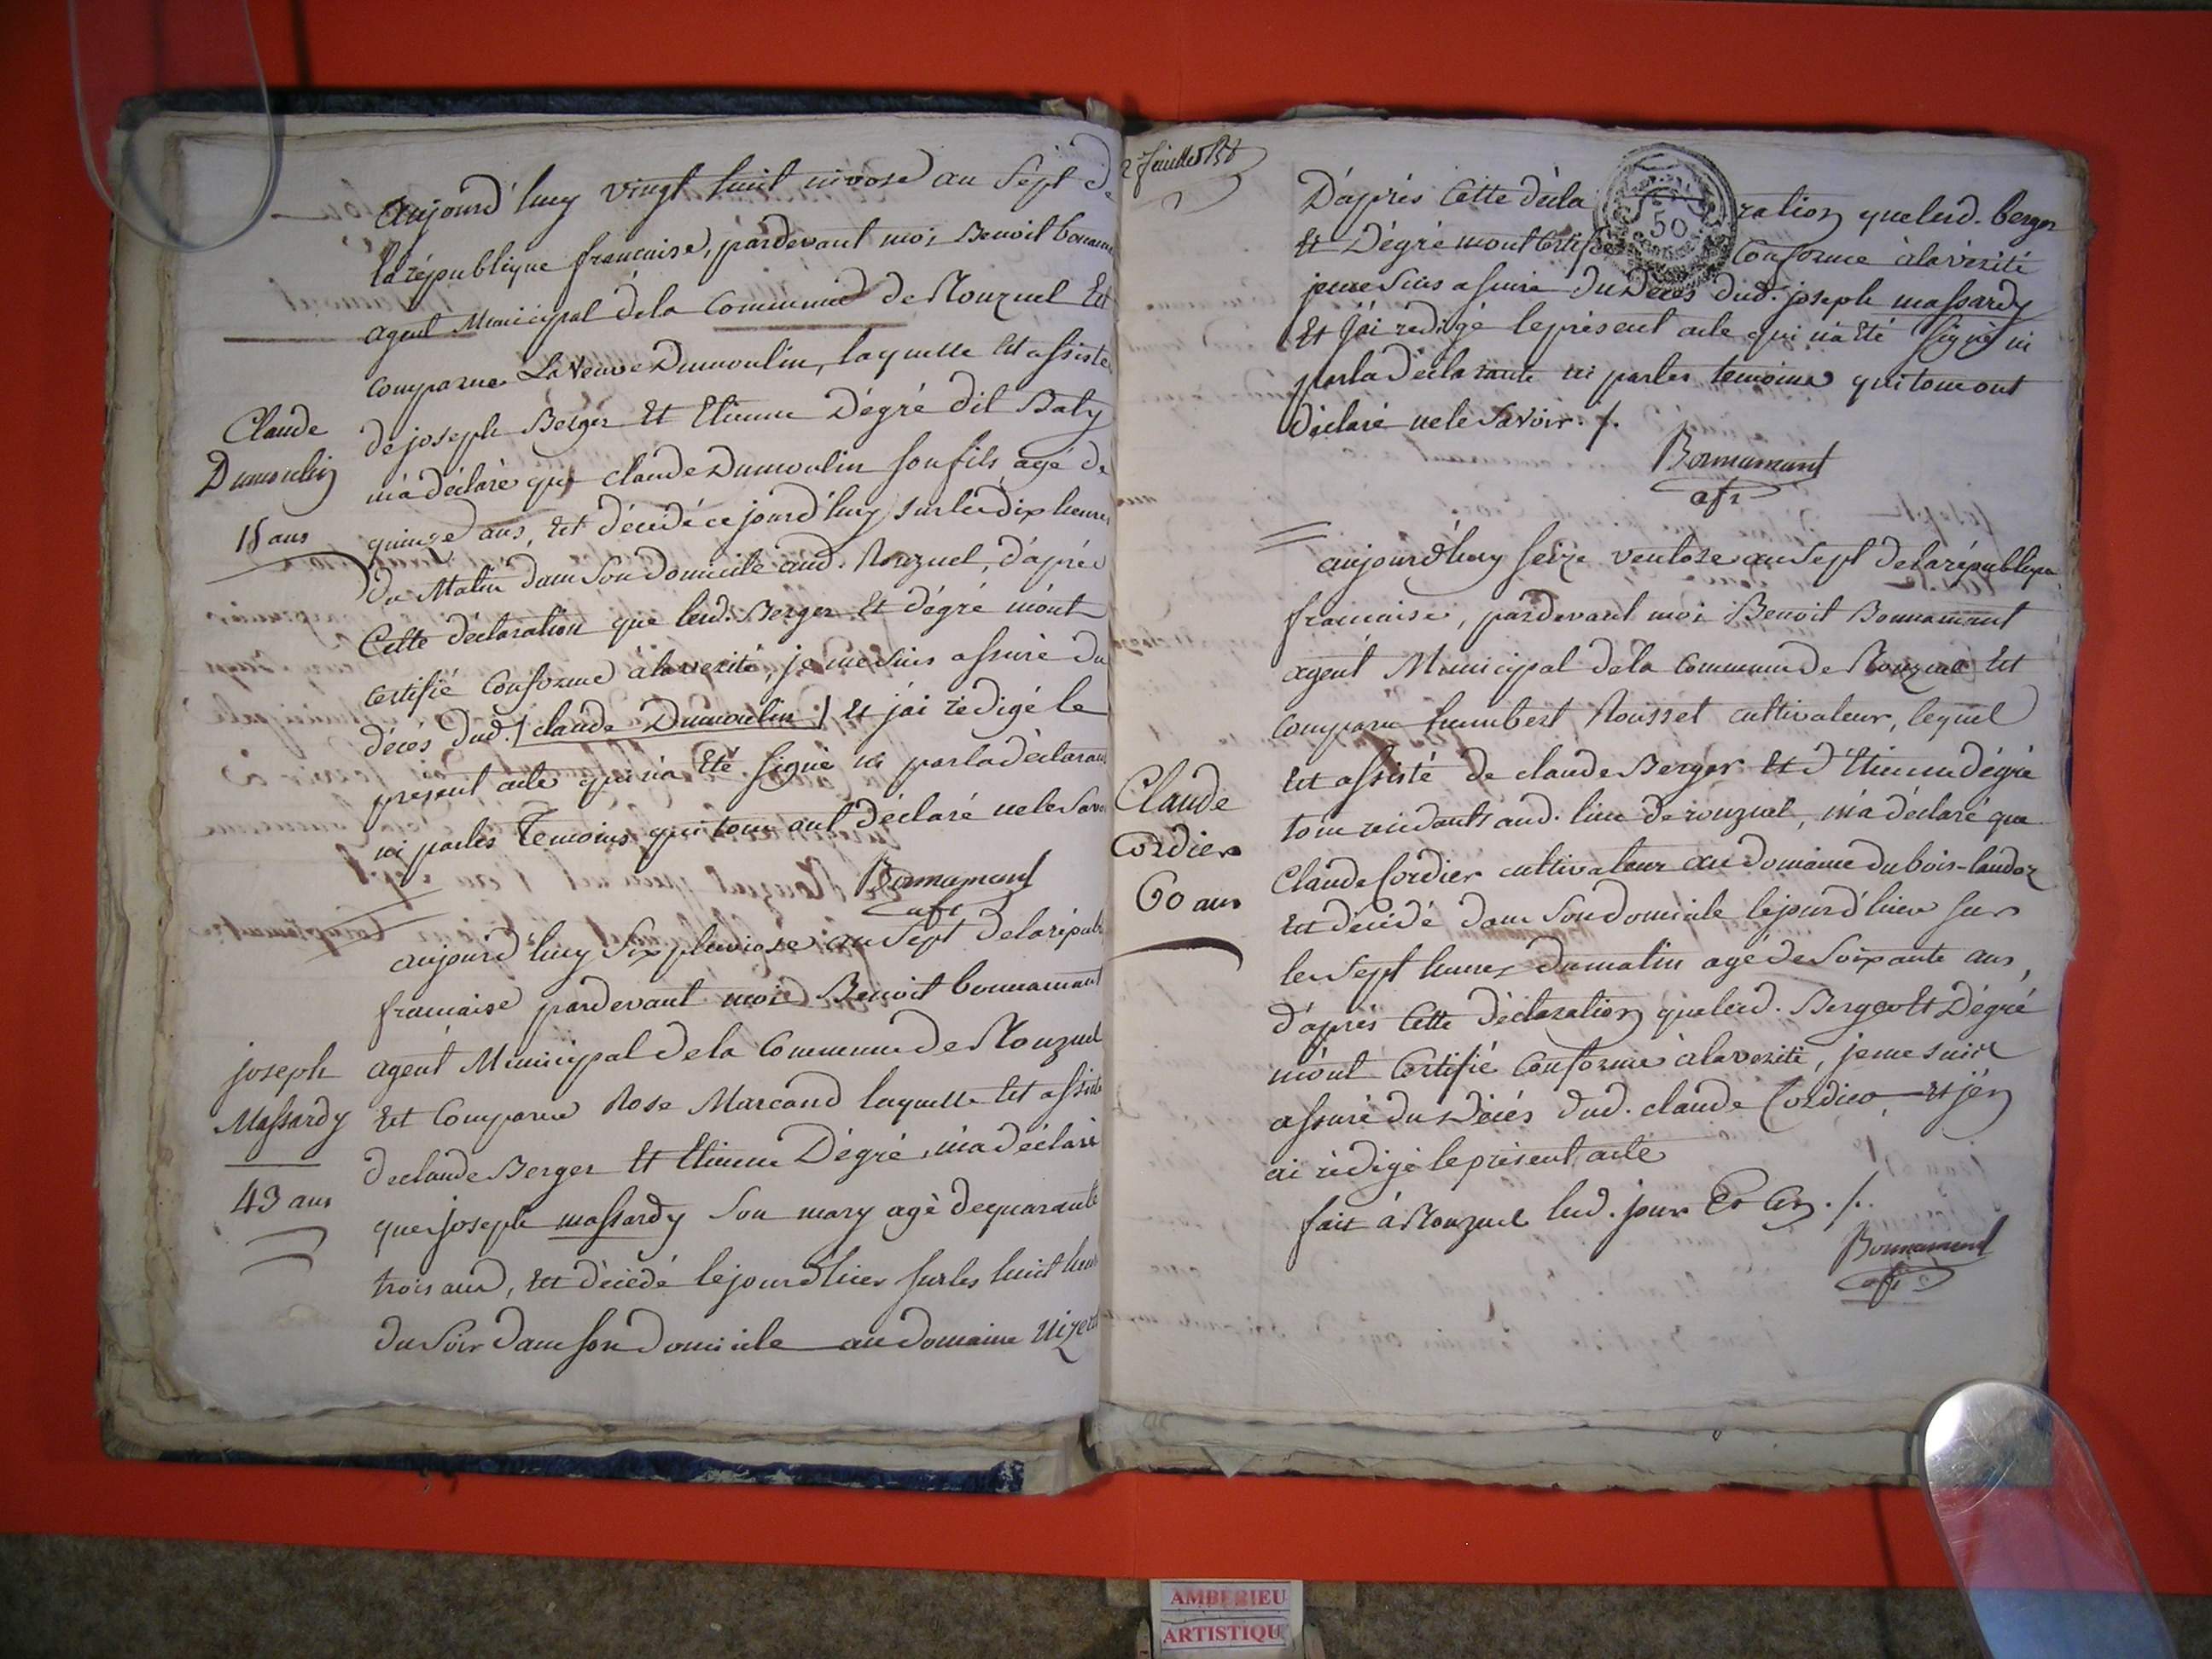 aujourd'huy vingt huit nivose an Sept de
la république francaise, pardevant moi Benoit bonnama
agent Municipal dela Commune de Rouzuel Est
comparue La Veuve Dumoulin, laquelle Est assistée
Claude
Dumoulin
15 ans
de joseph Berger Et Etienne Dégré dit Baty
m'a déclaré que claude Dumoulin son fils, agé de
quinze ans, Est décedé ce jourd'huy sur les dix heures
du Matin dans Son domicile aud. Rouzuel, d'après
Cette déclaration que lesd. Berger Et dégré m'ont
certifié Conforme à la verité, je me Suis assuré du
déces dud. / claude Dumoulin / Et j'ai rédigé le
present acte qui n'a Eté Signé ni par la déclarant
ni par les Temoins qui tous ont déclaré ne le Savo
Bonnamant
agt
aujourd'huy Six pluviose an Sept dela républ
francaise pardevant moi Benoit bonnamant
joseph
Massardy
43 ans
agent Municipal dela Commune de Rouzuel
Est Comparue Rose Marcand laquelle Est assist
de claude Berger Et Etienne Dégré, m'a déclaré
que joseph massardy Son mary agé de quarante
trois ans, Est décédé le jour d'hier sur les huit heur
du Soir dans son domicile au domaine
2e feuillet
D'après Cette décla ration que lesd. berger
Et Dégré m'ont Certifié Conforme à la vérité
je me Suis assuré du Décès dud. joseph massardy
Et j'ai redigé le présent acte qui n'a Eté Signé ni
par la déclarante ni par les temoins qui tous ont
déclaré ne le Savoir ./.
Bonnamant
agt
50
aujourd'huy Seize ventose an Sept de la républiqu
francaise, pardevant moi Benoit Bonnamant
agent Municipal dela Commune de Rouzuel Est
comparu humbert Rousset cultivateur, lequel
Claude
Cordier
60 ans
Est assisté de claude Berger Et d'Etienne dégré
tous residants aud. lieu de rouzuel, m'a déclaré que
Claude Cordier cultivateur au domaine du bois-landoz
Est décédé dans Son domicile le jourd'hier sur
les Sept heures du matin agé de Soixante ans,
d'après Cette déclaration que lesd. Berger Et Dégré
m'ont Certifié Conforme à la verité, je me suis
assuré du Décés dud. claude Cordier, Et j'en
ai rédigé le présent acte
fait à Rouzuel lesd. jour Et an ./.
Bonnamant
agt
AMBERIEU
ARTISTIQU